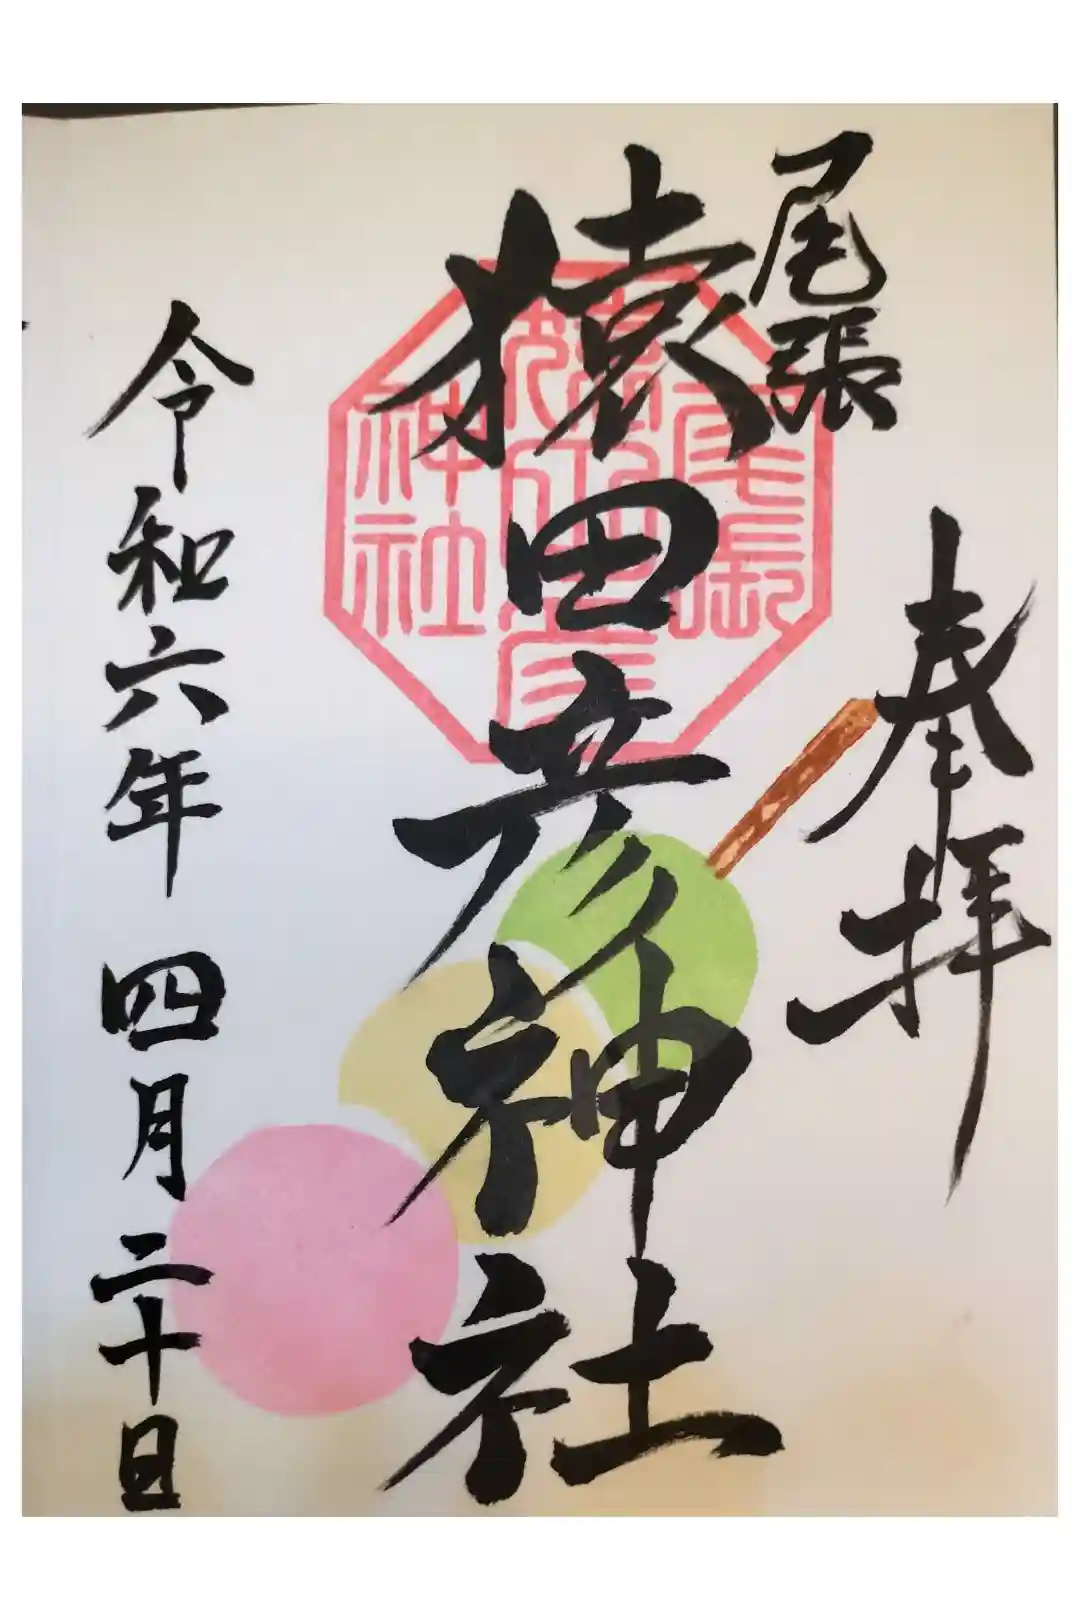 奉拝
尾張
猿田彦神社
令和六年 四月二十日
尾張
猿田彦
神社